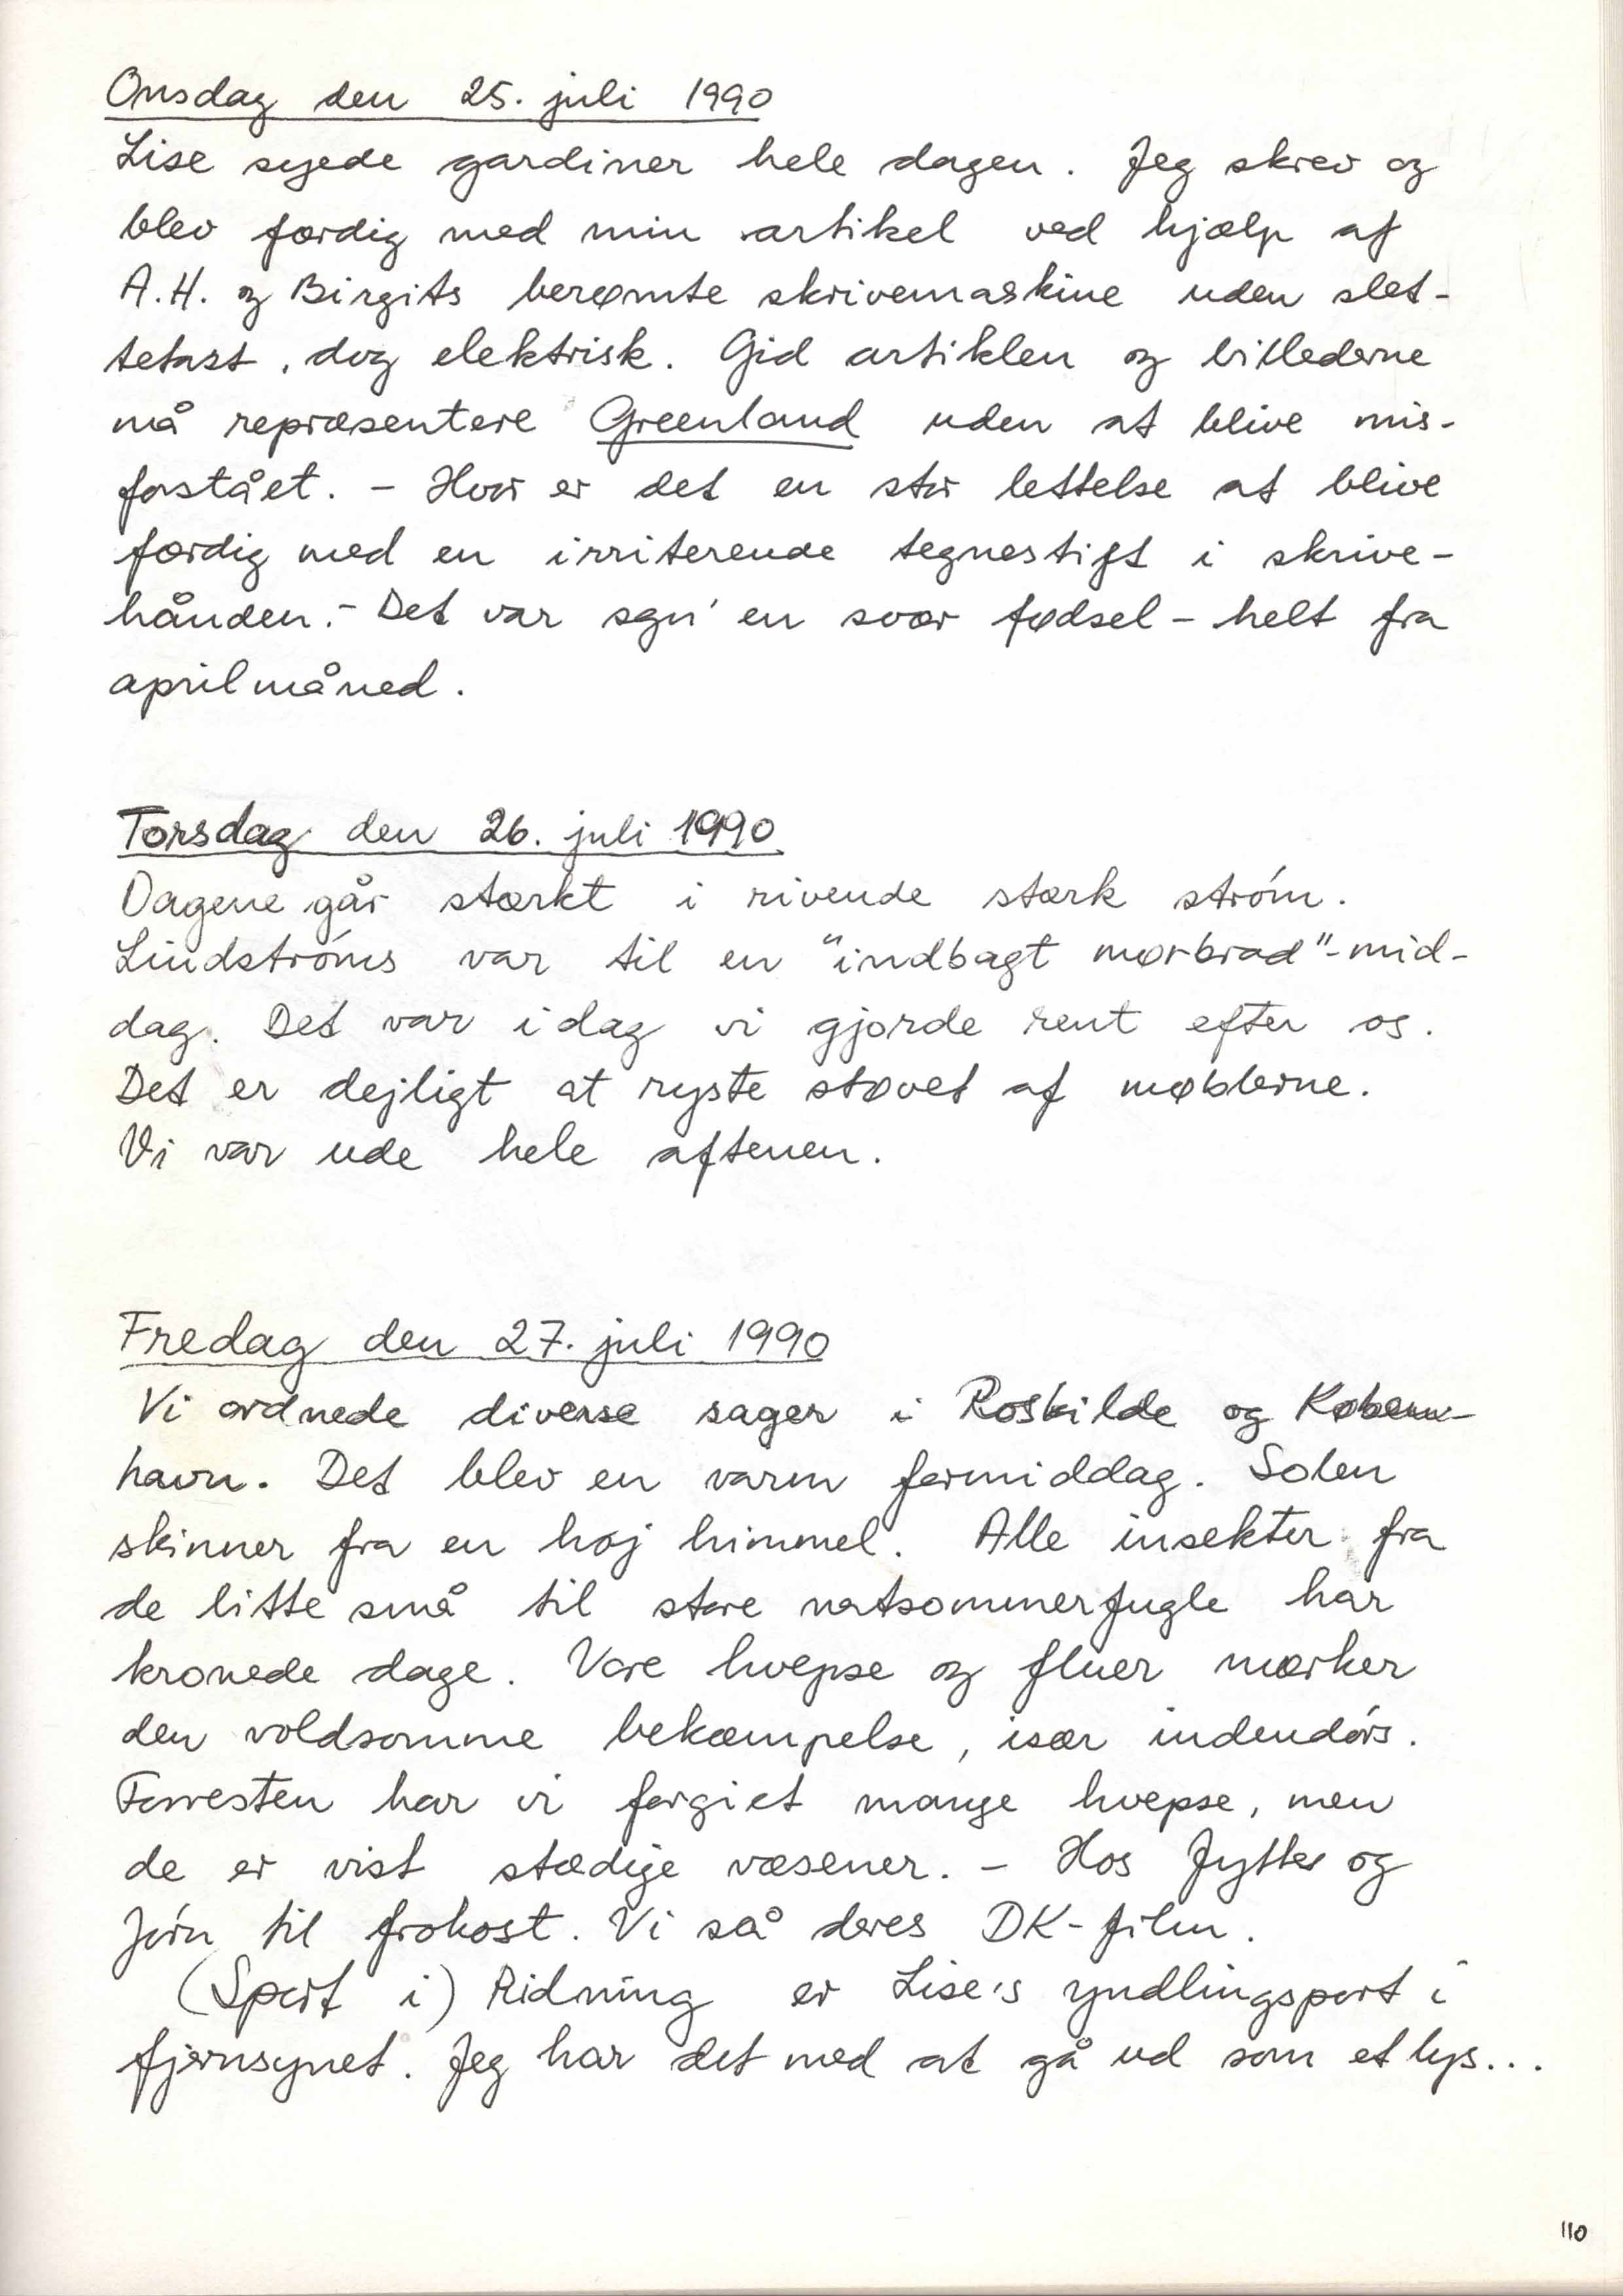 Onsdag den 25. juli 1990
Lise syede gardiner hele dagen. Jeg skrev og
blev færdig med min artikel ved hjælp af
A.H. og Birgits berømte skrivemaskine uden slet-
tetast, dog elektrisk. Gid artiklen og billederne
må repræsentere Greenland uden at blive mis-
forstået. - Hvor er det en stor lettelse at blive
færdig med en irriterende tegnestift i skrive-
hånden. - Det var sgu' en svær fødsel - helt fra
april måned.
Torsdag den 26. juli 1990
Dagene går stærkt i rivende stærk ström.
Lindströms var til en "indbagt mørbrad"-mid-
dag. Det var idag vi gjorde rent efter os.
Det er dejligt at ryste støvet af møblerne.
Vi var ude hele aftenen.
Fredag den 27. juli 1990
Vi ordnede diverse sager i Roskilde og Køben-
havn. Det blev en varm formiddag. Solen
skinner fra en høj himmel. Alle insekter fra
de litte små til store natsommerfugle har
kronede dage. Vore hvepse og fluer mærker
den voldsomme bekæmpelse, især indendørs.
Forresten har vi forgiet mange hvepse, men
de er vist stædige væsener. - Hos Jyttes og
Jörn til frokost. Vi så deres DK-film.
(Sport i) Ridning er Lise's yndlingsport i
fjernsynet. Jeg har det med at gå ud som et lys...
110